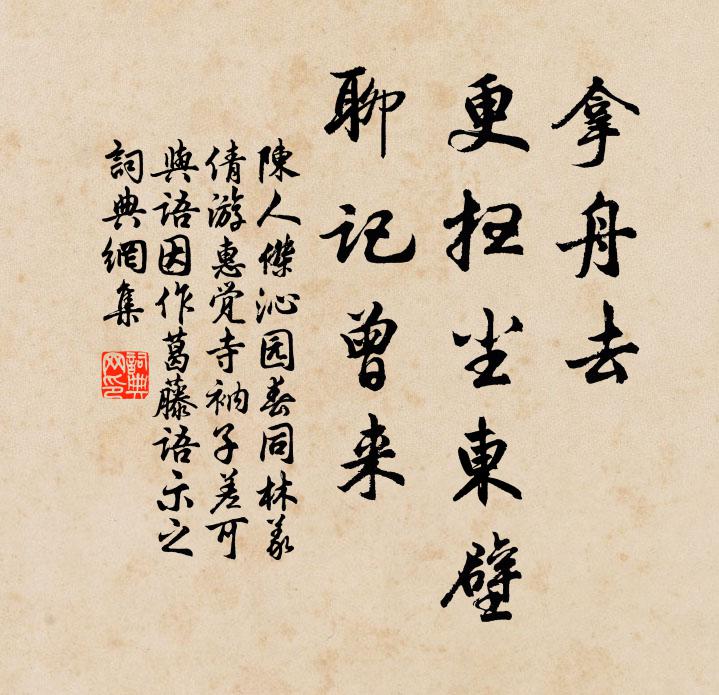 拿舟去
更扫尘東壁
聊记曾来
陳人傑沁园春同林義
倩游惠觉寺衲子差可
與语因作葛藤语示之
詞典網集
詞典網印